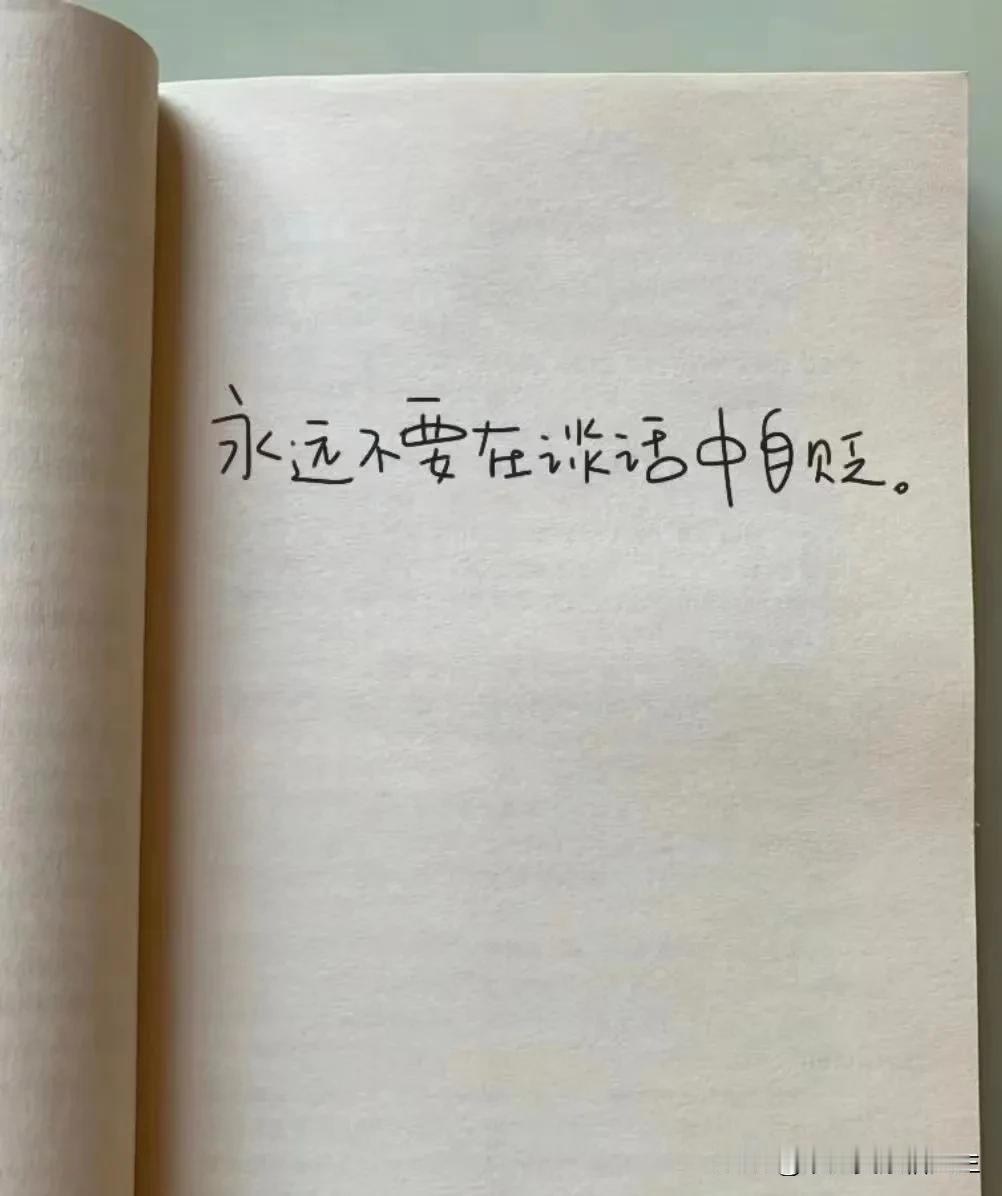 永远不要在谈话中自贬。